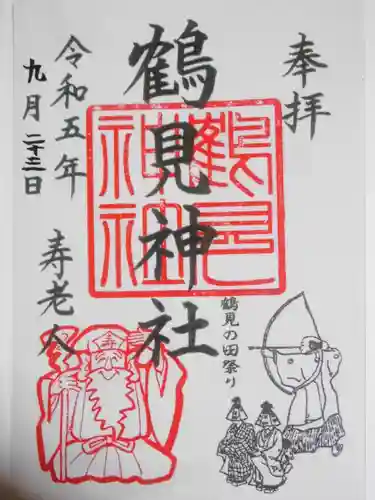 奉拝
鶴見神社
鶴見神社
令和五年
九月二十三日
寿老人
鶴見の田祭り
寿